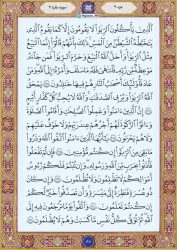 جزء ۳
سورة بقره ۲
ٱلَّذِينَ يَأْكُلُونَ ٱلرِّبَوٰا۟ لَا يَقُومُونَ إِلَّا كَمَا يَقُومُ ٱلَّذِى
يَتَخَبَّطُهُ ٱلشَّيْطَٰنُ مِنَ ٱلْمَسِّ ذَٰلِكَ بِأَنَّهُمْ قَالُوٓا۟ إِنَّمَا ٱلْبَيْعُ
مِثْلُ ٱلرِّبَوٰا۟ وَأَحَلَّ ٱللَّهُ ٱلْبَيْعَ وَحَرَّمَ ٱلرِّبَوٰا۟ فَمَن جَآءَهُۥ
مَوْعِظَةٌ مِّن رَّبِّهِۦ فَٱنتَهَىٰ فَلَهُۥ مَا سَلَفَ وَأَمْرُهُۥٓ إِلَى ٱللَّهِ وَمَنْ
عَادَ فَأُو۟لَٰٓئِكَ أَصْحَٰبُ ٱلنَّارِ هُمْ فِيهَا خَٰلِدُونَ ۝ يَمْحَقُ
ٱللَّهُ ٱلرِّبَوٰا۟ وَيُرْبِى ٱلصَّدَقَٰتِ وَٱللَّهُ لَا يُحِبُّ كُلَّ كَفَّارٍ أَثِيمٍ ۝
إِنَّ ٱلَّذِينَ ءَامَنُوا۟ وَعَمِلُوا۟ ٱلصَّٰلِحَٰتِ وَأَقَامُوا۟ ٱلصَّلَوٰةَ
وَءَاتَوُا۟ ٱلزَّكَوٰةَ لَهُمْ أَجْرُهُمْ عِندَ رَبِّهِمْ وَلَا خَوْفٌ عَلَيْهِمْ
وَلَا هُمْ يَحْزَنُونَ ۝ يَٰٓأَيُّهَا ٱلَّذِينَ ءَامَنُوا۟ ٱتَّقُوا۟ ٱللَّهَ وَذَرُوا۟
مَا بَقِىَ مِنَ ٱلرِّبَوٰٓا۟ إِن كُنتُم مُّؤْمِنِينَ ۝ فَإِن لَّمْ تَفْعَلُوا۟
فَأْذَنُوا۟ بِحَرْبٍ مِّنَ ٱللَّهِ وَرَسُولِهِۦ وَإِن تُبْتُمْ فَلَكُمْ رُءُوسُ
أَمْوَٰلِكُمْ لَا تَظْلِمُونَ وَلَا تُظْلَمُونَ ۝ وَإِن كَانَ
ذُو عُسْرَةٍ فَنَظِرَةٌ إِلَىٰ مَيْسَرَةٍ وَأَن تَصَدَّقُوا۟ خَيْرٌ لَّكُمْ
إِن كُنتُمْ تَعْلَمُونَ ۝ وَٱتَّقُوا۟ يَوْمًا تُرْجَعُونَ فِيهِ إِلَى ٱللَّهِ
ثُمَّ تُوَفَّىٰ كُلُّ نَفْسٍ مَّا كَسَبَتْ وَهُمْ لَا يُظْلَمُونَ ۝